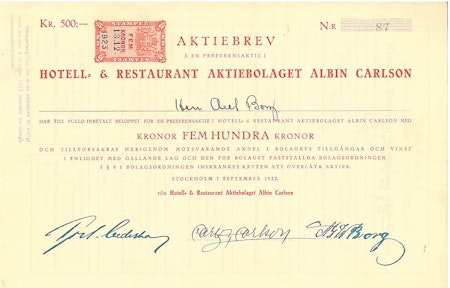 KR. 500:—
STÄMPEL
FEM
KRONOR
12.12
1923
N:R 87
AKTIEBREV
Å EN PREFERENSAKTIE I
HOTELL- & RESTAURANT AKTIEBOLAGET ALBIN CARLSON
Herr Axel Borg
HAR TILL FULLO INBETALT BELOPPET FÖR EN PREFERENSAKTIE I HOTELL- & RESTAURANT AKTIEBOLAGET ALBIN CARLSON MED
KRONOR FEM HUNDRA KRONOR
OCH TILLFÖRSÄKRAS HÄRIGENOM MOTSVARANDE ANDEL I BOLAGETS TILLGÅNGAR OCH VINST
I ENLIGHET MED GÄLLANDE LAG OCH DEN FÖR BOLAGET FASTSTÄLLDA BOLAGSORDNINGEN
I § 5 I BOLAGSORDNINGEN INSKRÄNKES RÄTTEN ATT ÖVERLÅTA AKTIER.
STOCKHOLM 1 SEPTEMBER 1922.
FÖR Hotell- & Restaurant Aktiebolaget Albin Carlson
Carlson
Borg